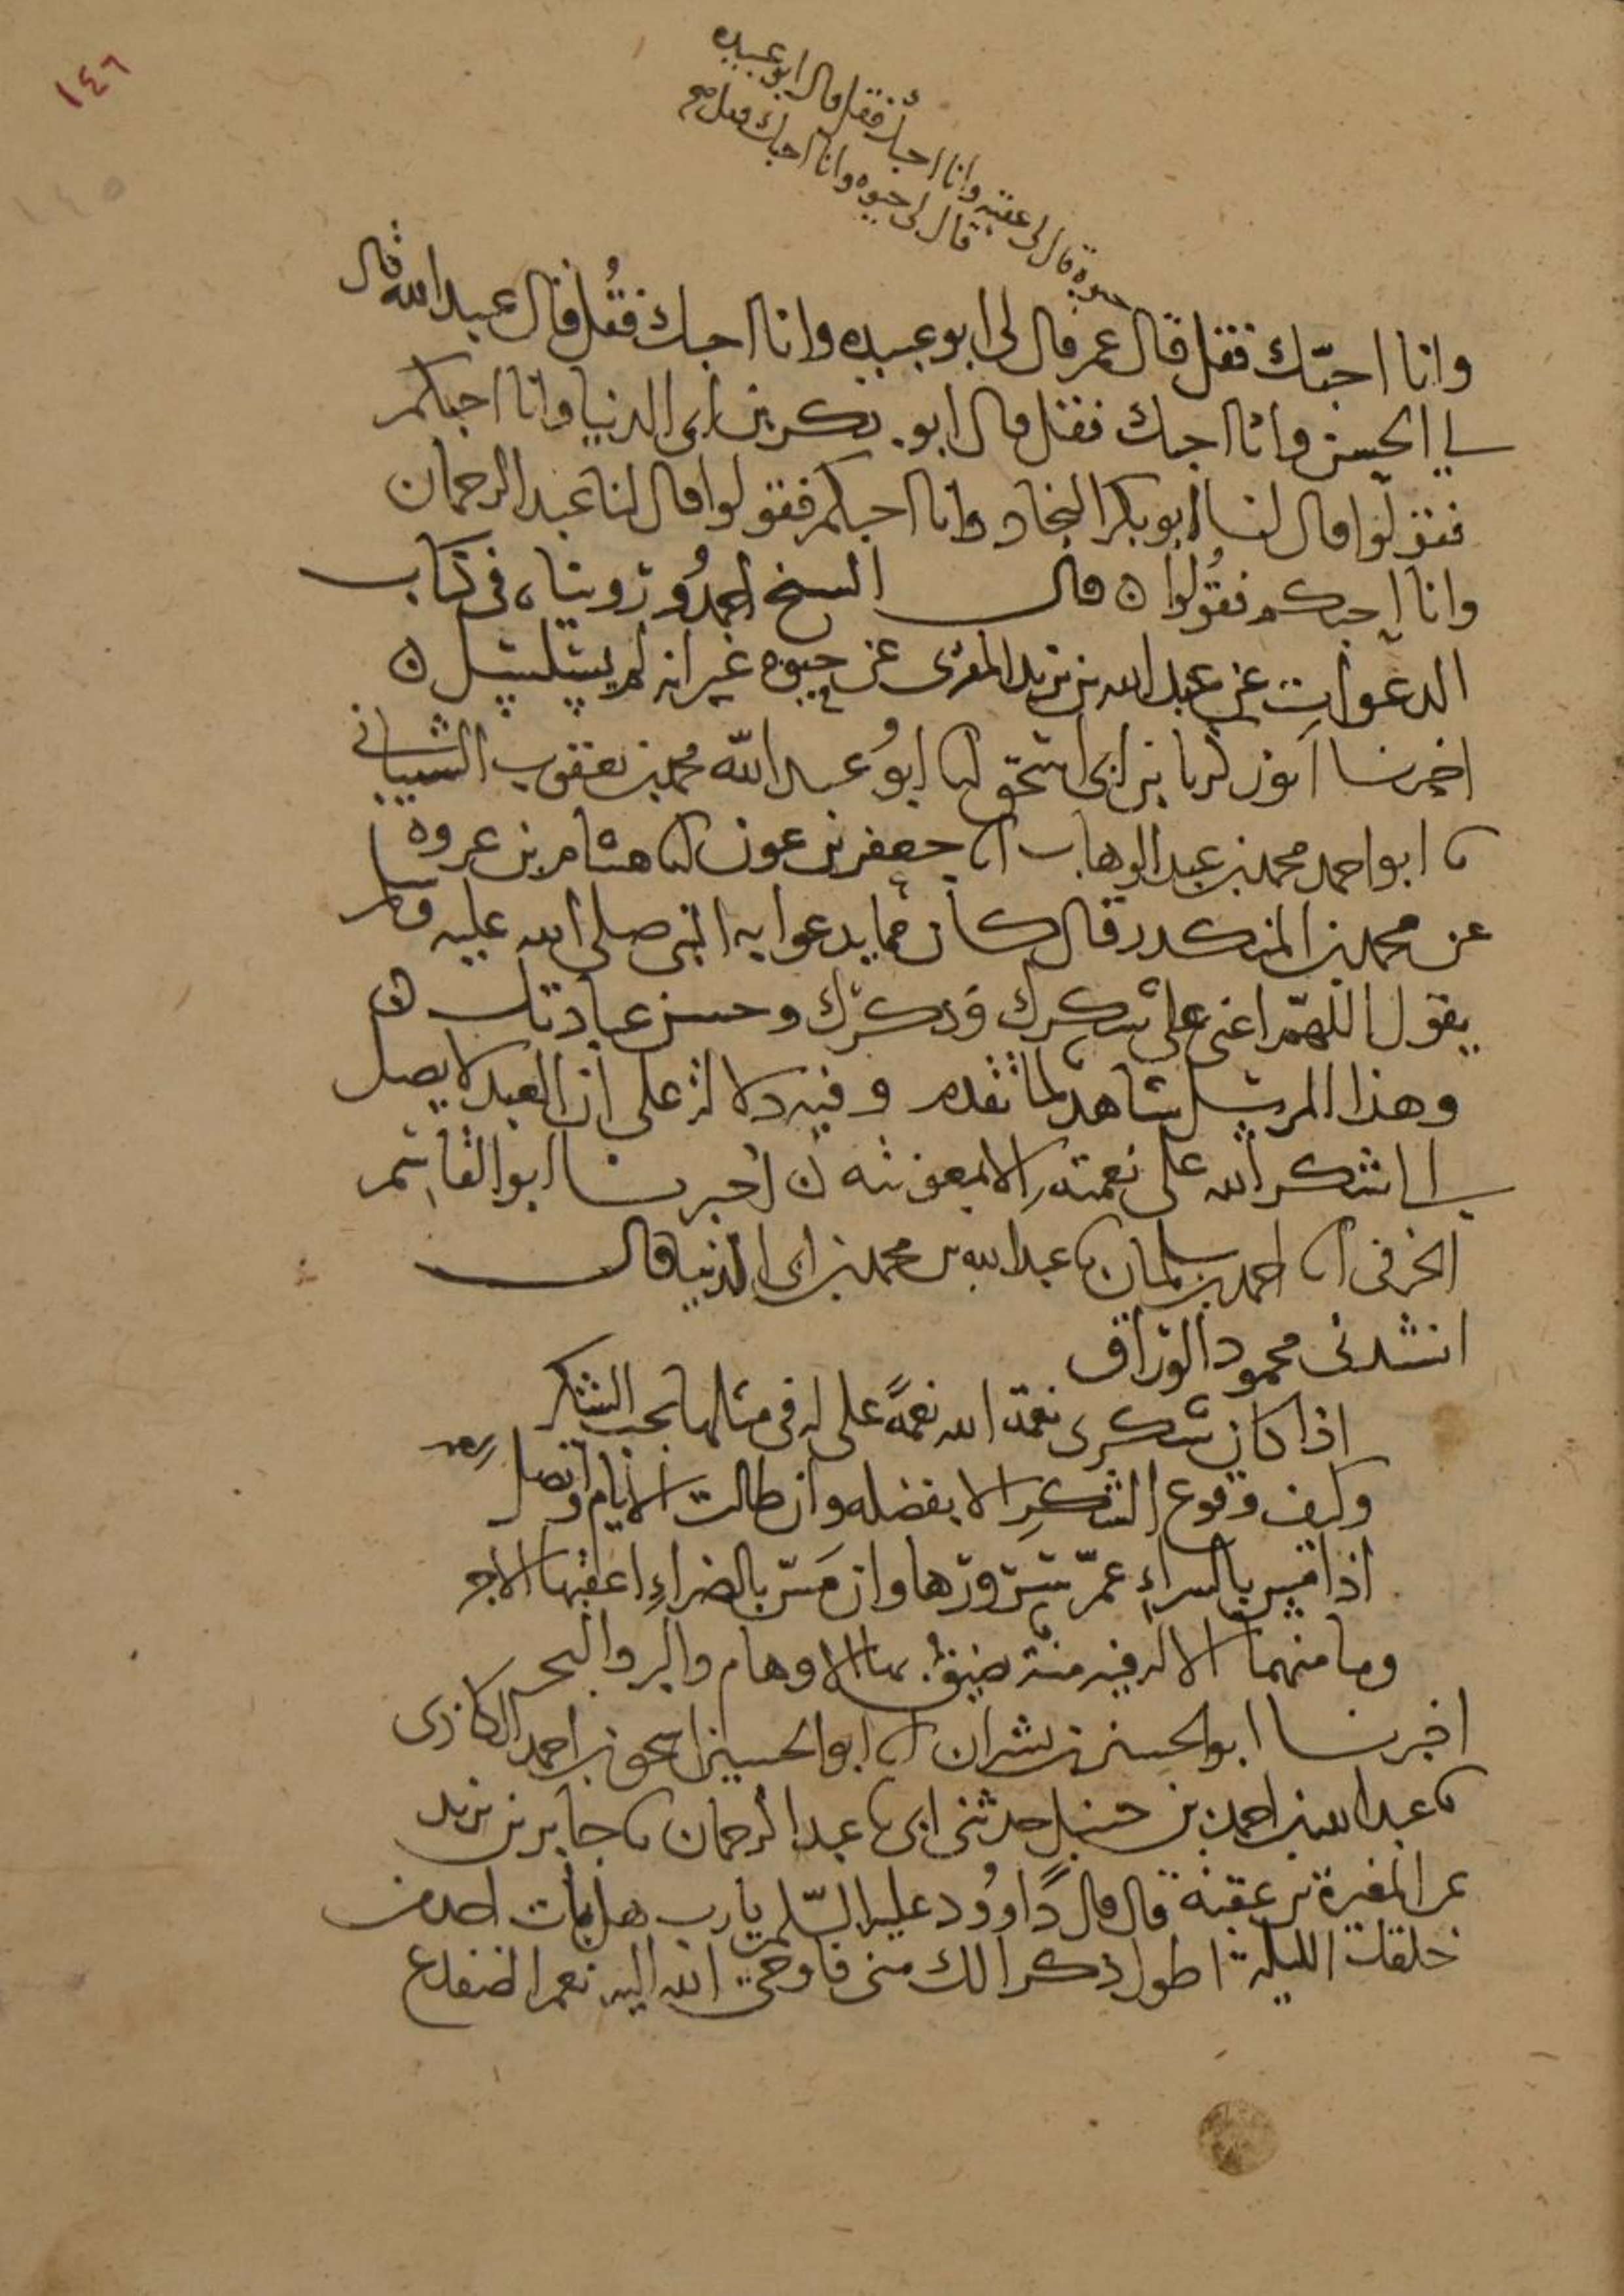 ١٤٦
١٤٥
حيوة قال لي عقبه وانا احبك فقل قال ابو عبيده
قال لي حيوه وانا احبك فقل صح
وانا احبّك فقل قال عمر قال لي ابو عبيده وانا احبك فقُل قال عبيد الله قال
لي الحسن وانا احبك فقل قال ابو بكر بن ابى الدنيا وانا احبكم
فقولوا قال لنا ابو بكر النجاد وانا احبكم فقولوا قال لنا عبد الرحمان
وانا احبكم فقُولوا ه قال الشيخ احمدُ ورويناه في كتاب
الدعوات عن عبد الله بن يزيد المقرى عن حيوه غير انه لم يتسلسل ه
اخبرنا ابو زكريا بن ابى اسحق انا ابوُ عبد الله محمد بن يعقوب الشيباني
نا ابو احمد محمد بن عبد الوهاب انا جعفر بن عون انا هشام بن عروه
عن محمد بن المنكدر قال كان مما يدعوا به النبى صلى الله عليه وسلم
يقول اللهمّ اعنى على شكرك وذكرك وحسن عبادتك ه
وهذا المرسل شاهد لما تقدم وفيه دلالة على ان العبد لا يصل
الى شكر الله على نعمته الا بمعونته ه اخبرنا ابو القاسم
الخرفى انا احمد بن سلمان نا عبد الله بن محمد بن ابى الدنيا قال
انشدنى محمود الوراق
اذا كان شكرى نعمة الله نعمةً على له فى مثلها يجب الشكر
وكيف وقوع الشكرِ الا بفضله وان طالت الايام واتصل العمر
اذا مس بالسراءِ عمّ سرورها وان مَسّ بالضراءِ اعقبها الاجر
وما منهما الا له فيه منة تضيق بها الاوهام والبر والبحر
اخبرنا ابو الحسين بن بشران انا ابو الحسين اسحق بن احمد الكاذى
نا عبد الله بن احمد بن حنبل حدثنى ابى نا عبد الرحمان نا جابر بن يزيد
عن المغيرة بن عقبة قال قال داوُود عليه السّلم يا رب هل بات احد من
خلقك الليلة اطول ذكرا لك منى فاوحى الله اليه نعم الضفدع